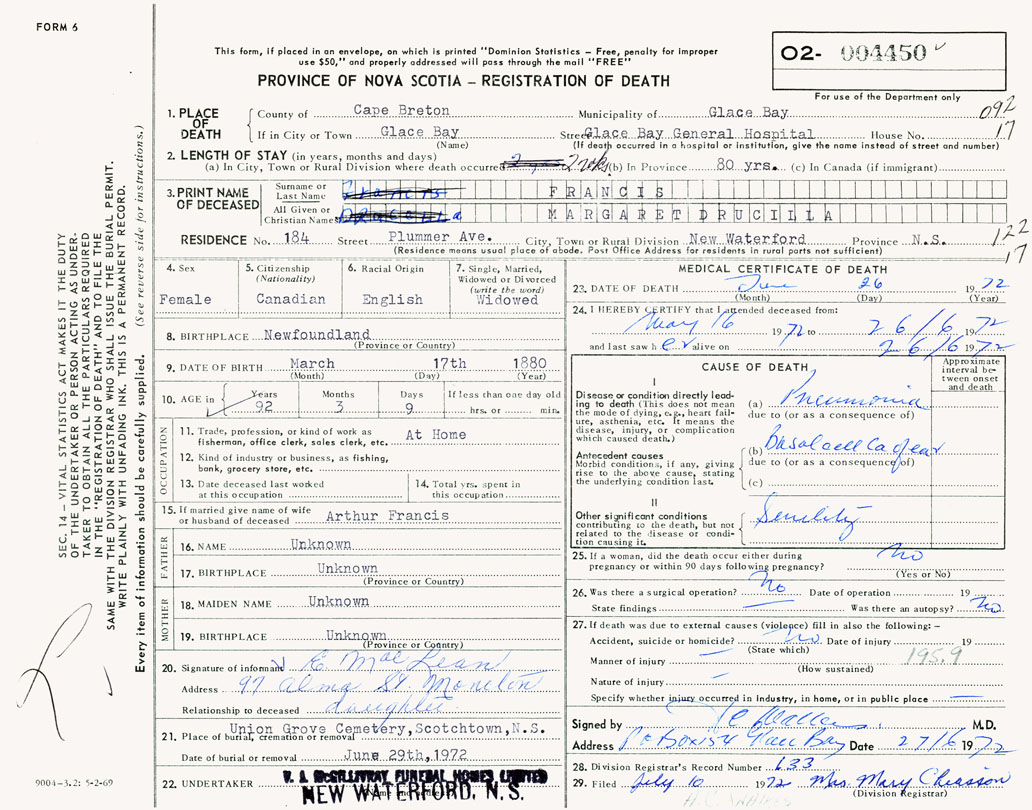 FORM 6
This form, if placed in an envelope, on which is printed "Dominion Statistics – Free, penalty for improper
use $50," and properly addressed will pass through the mail "FREE"
PROVINCE OF NOVA SCOTIA – REGISTRATION OF DEATH
02- 004450
For use of the Department only
092
17
1. PLACE OF DEATH
County of Cape Breton Municipality of Glace Bay
If in City or Town Glace Bay Street Glace Bay General Hospital House No.
(Name) (If death occurred in a hospital or institution, give the name instead of street and number)
2. LENGTH OF STAY (in years, months and days)
(a) In City, Town or Rural Division where death occurred (b) In Province 80 yrs. (c) In Canada (if immigrant)
3. PRINT NAME OF DECEASED
Surname or Last Name FRANCIS
All Given or Christian Names MARGARET DRUCILLA
RESIDENCE No. 184 Street Plummer Ave. City, Town or Rural Division New Waterford Province N.S.
(Residence means usual place of abode. Post Office Address for residents in rural parts not sufficient)
122
17
4. Sex
Female
5. Citizenship
(Nationality)
Canadian
6. Racial Origin
English
7. Single, Married,
Widowed or Divorced
(write the word)
Widowed
8. BIRTHPLACE Newfoundland
(Province or Country)
9. DATE OF BIRTH March 17th 1880
(Month) (Day) (Year)
10. AGE in Years Months Days If less than one day old
92 3 9 hrs. or min.
OCCUPATION
11. Trade, profession, or kind of work as
fisherman, office clerk, sales clerk, etc. At Home
12. Kind of industry or business, as fishing,
bank, grocery store, etc.
13. Date deceased last worked
at this occupation
14. Total yrs. spent in
this occupation
15. If married give name of wife
or husband of deceased Arthur Francis
FATHER
16. NAME Unknown
17. BIRTHPLACE Unknown
(Province or Country)
MOTHER
18. MAIDEN NAME Unknown
19. BIRTHPLACE Unknown
(Province or Country)
20. Signature of informant E MacLean
Address 97 Alma St Moncton
Relationship to deceased daughter
21. Place of burial, cremation or removal Union Grove Cemetery, Scotchtown, N.S.
Date of burial or removal June 29th, 1972
22. UNDERTAKER V. J. McGILLIVRAY FUNERAL HOMES LIMITED
NEW WATERFORD, N. S.
MEDICAL CERTIFICATE OF DEATH
23. DATE OF DEATH June 26 1972
(Month) (Day) (Year)
24. I HEREBY CERTIFY that I attended deceased from:
May 16 1972 to 26/6 1972
and last saw her alive on 26/6 1972
CAUSE OF DEATH
Approximate
interval be-
tween onset
and death
I
Disease or condition directly lead-
ing to death (This does not mean
the mode of dying, e.g., heart fail-
ure, asthenia, etc. It means the
disease, injury, or complication
which caused death.)
(a) Pneumonia
due to (or as a consequence of)
Antecedent causes
Morbid conditions, if any, giving
rise to the above cause, stating
the underlying condition last.
(b) Basal cell Ca of ear
due to (or as a consequence of)
(c)
II
Other significant conditions
contributing to the death, but not
related to the disease or condi-
tion causing it.
Senility
25. If a woman, did the death occur either during
pregnancy or within 90 days following pregnancy? No
(Yes or No)
26. Was there a surgical operation? No Date of operation 19
State findings — Was there an autopsy? No
27. If death was due to external causes (violence) fill in also the following: –
Accident, suicide or homicide? No Date of injury 19
(State which)
Manner of injury — 195.9
(How sustained)
Nature of injury —
Specify whether injury occurred in industry, in home, or in public place —
Signed by M.D.
Address P O Box 54 Glace Bay Date 27/6 1972
28. Division Registrar's Record Number 633
29. Filed July 10 1972 Mrs. Mary Chiasson
(Division Registrar)
SEC. 14 – VITAL STATISTICS ACT MAKES IT THE DUTY
OF THE UNDERTAKER OR PERSON ACTING AS UNDER-
TAKER TO OBTAIN ALL THE PARTICULARS REQUIRED
IN THE "REGISTRATION OF DEATH" AND TO FILE THE
SAME WITH THE DIVISION REGISTRAR WHO SHALL ISSUE THE BURIAL PERMIT.
WRITE PLAINLY WITH UNFADING INK. THIS IS A PERMANENT RECORD.
Every item of information should be carefully supplied. (See reverse side for instructions.)
9004-3.2: 5-2-69